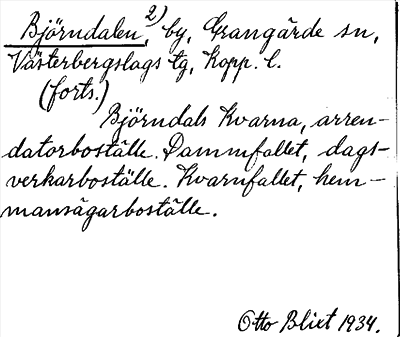 Björndalen, 2) by, Grangärde sn,
Västerbergslags tg, Kopp. l.
(forts.)
Björndals Kvarna, arren-
datorboställe. Dammfallet, dags-
verkarboställe. Kvarnfallet, hem-
mansägarboställe.
Otto Blixt 1934.